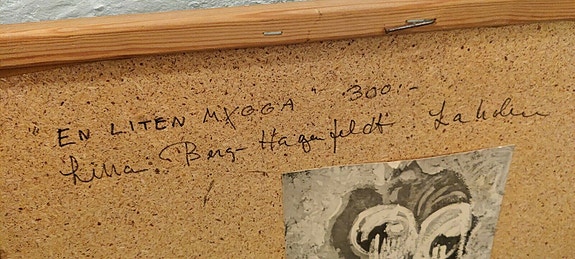 "EN LITEN MYGGA" 300:-
Lilla Berg-Hagenfeldt Lahden